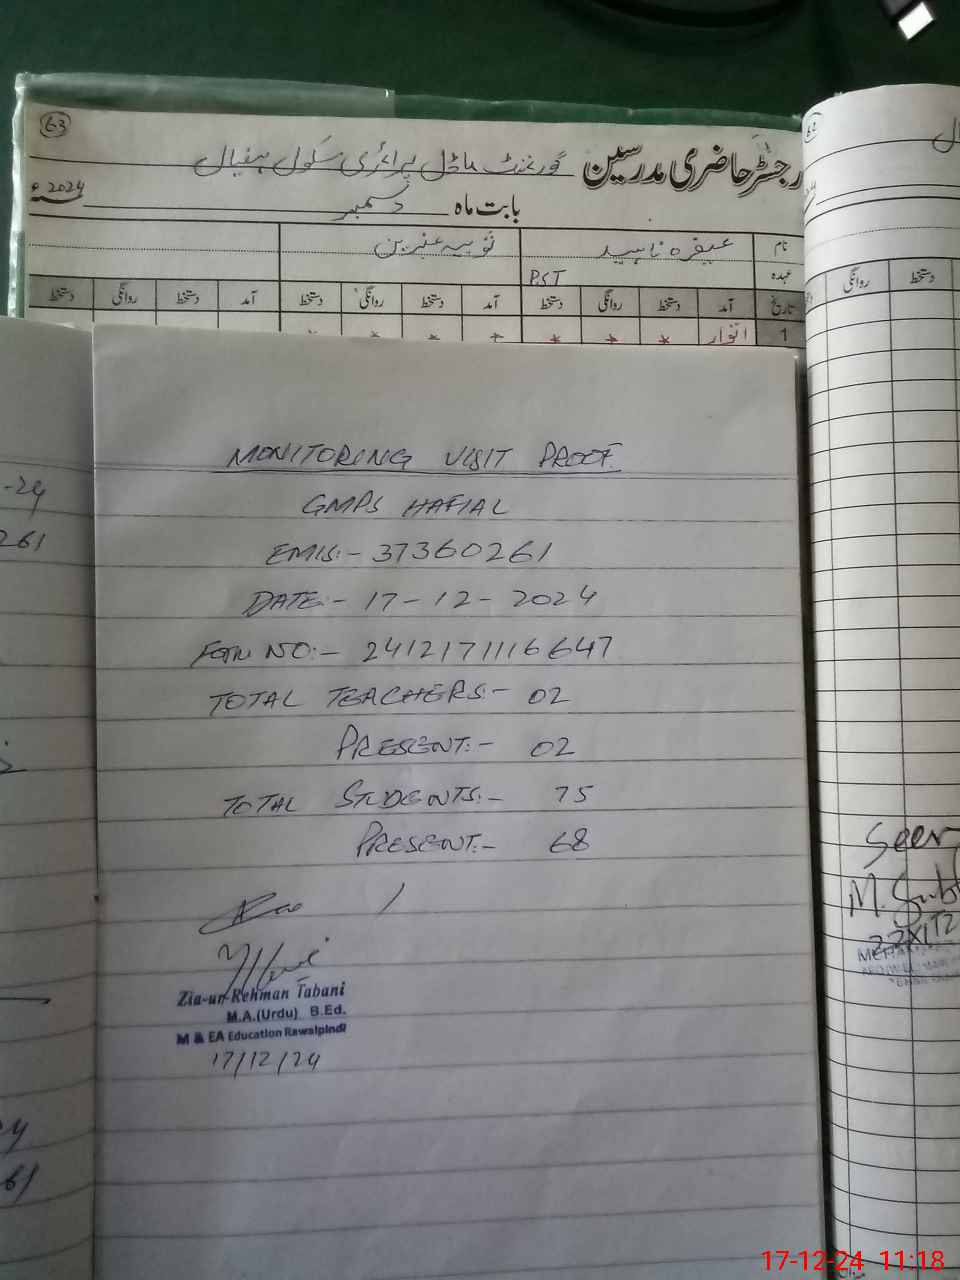 63
رجسٹر حاضری مدرسین گورنمنٹ ماڈل پرائمری سکول ہفیال
بابت ماہ دسمبر 2024ء
نام
عیفرہ ناہید
ثوبیہ عنبرین
عہدہ
PST
تاریخ آمد دستخط روانگی دستخط آمد دستخط روانگی دستخط آمد دستخط روانگی دستخط
1 اتوار
روانگی دستخط
-24
261
MONITORING VISIT PROOF
GMPS HAFIAL
EMIS:- 37360261
DATE:- 17-12-2024
FORM NO:- 2412171116647
TOTAL TEACHERS:- 02
PRESENT:- 02
TOTAL STUDENTS:- 75
PRESENT:- 68
Zia-ur-Rehman Tabani
M.A.(Urdu) B.Ed.
M & EA Education Rawalpindi
17/12/24
Seen
61
17-12-24 11:18